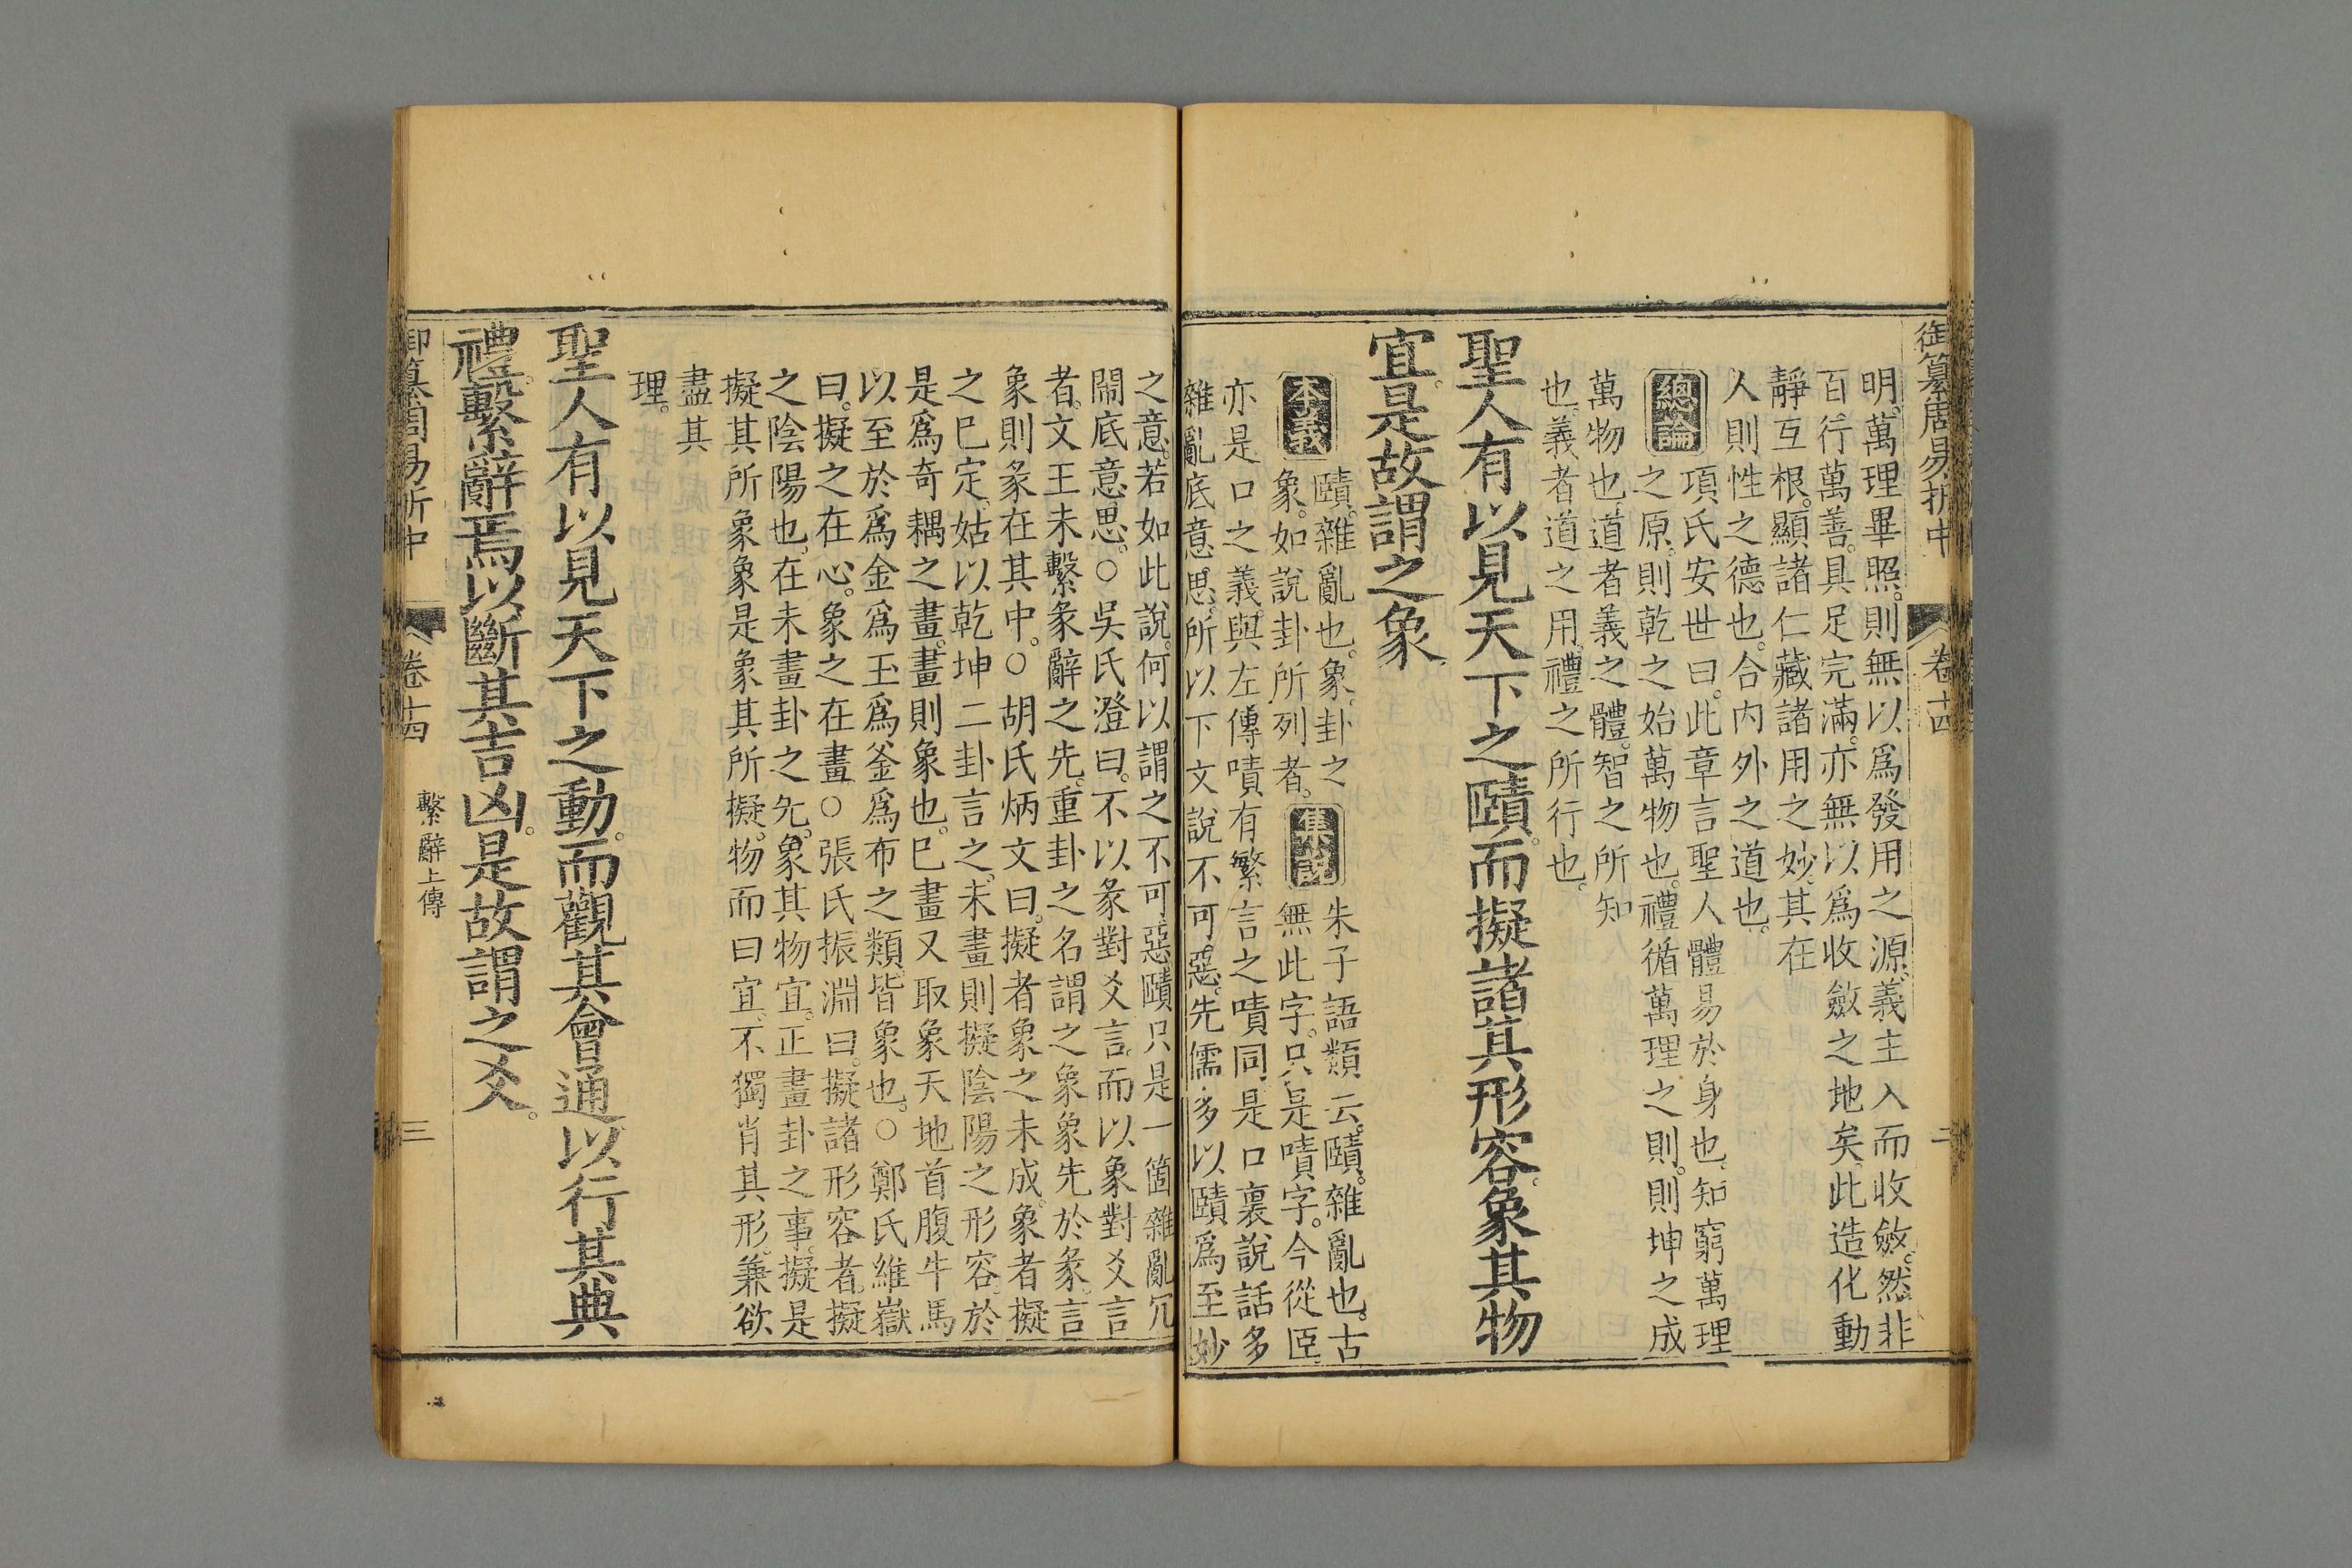 御纂周易折中 卷十四 二
明。萬理畢照。則無以為發用之源。義主入而收斂。然非
百行萬善。具足完滿。亦無以為收斂之地矣。此造化動
靜互根。顯諸仁藏諸用之妙。其在
人則性之德也。合內外之道也。
總論
項氏安世曰。此章言聖人體易於身也。知窮萬理
之原。則乾之始萬物也。禮循萬理之則。則坤之成
萬物也。道者義之體。智之所知
也。義者道之用。禮之所行也。
聖人有以見天下之賾。而擬諸其形容。象其物
宜。是故謂之象。
本義
賾。雜亂也。象。卦之
象。如說卦所列者。
集說
朱子語類云。賾。雜亂也。古
無此字。只是嘖字。今從臣
亦是口之義。與左傳嘖有繁言之嘖同。是口裏說話多
雜亂底意思。所以下文說不可惡。先儒多以賾為至妙
之意。若如此說。何以謂之不可惡。賾只是一箇雜亂冗
鬧底意思。○吳氏澄曰。不以彖對爻言。而以象對爻言
者。文王未繫彖辭之先。重卦之名謂之象。象先於彖。言
象則彖在其中。○胡氏炳文曰。擬者象之未成。象者擬
之已定。姑以乾坤二卦言之。未畫則擬陰陽之形容。於
是為奇耦之畫。畫則象也。已畫又取象天地首腹牛馬
以至於為金為玉為釜為布之類。皆象也。○鄭氏維嶽
曰。擬之在心。象之在畫○張氏振淵曰。擬諸形容者。擬
之陰陽也。在未畫卦之先。象其物宜。正畫卦之事。擬是
擬其所象。象是象其所擬。物而曰宜。不獨肖其形。兼欲
盡其
理。
聖人有以見天下之動。而觀其會通。以行其典
禮。繫辭焉以斷其吉凶。是故謂之爻。
御纂周易折中 卷十四 繫辭上傳 三